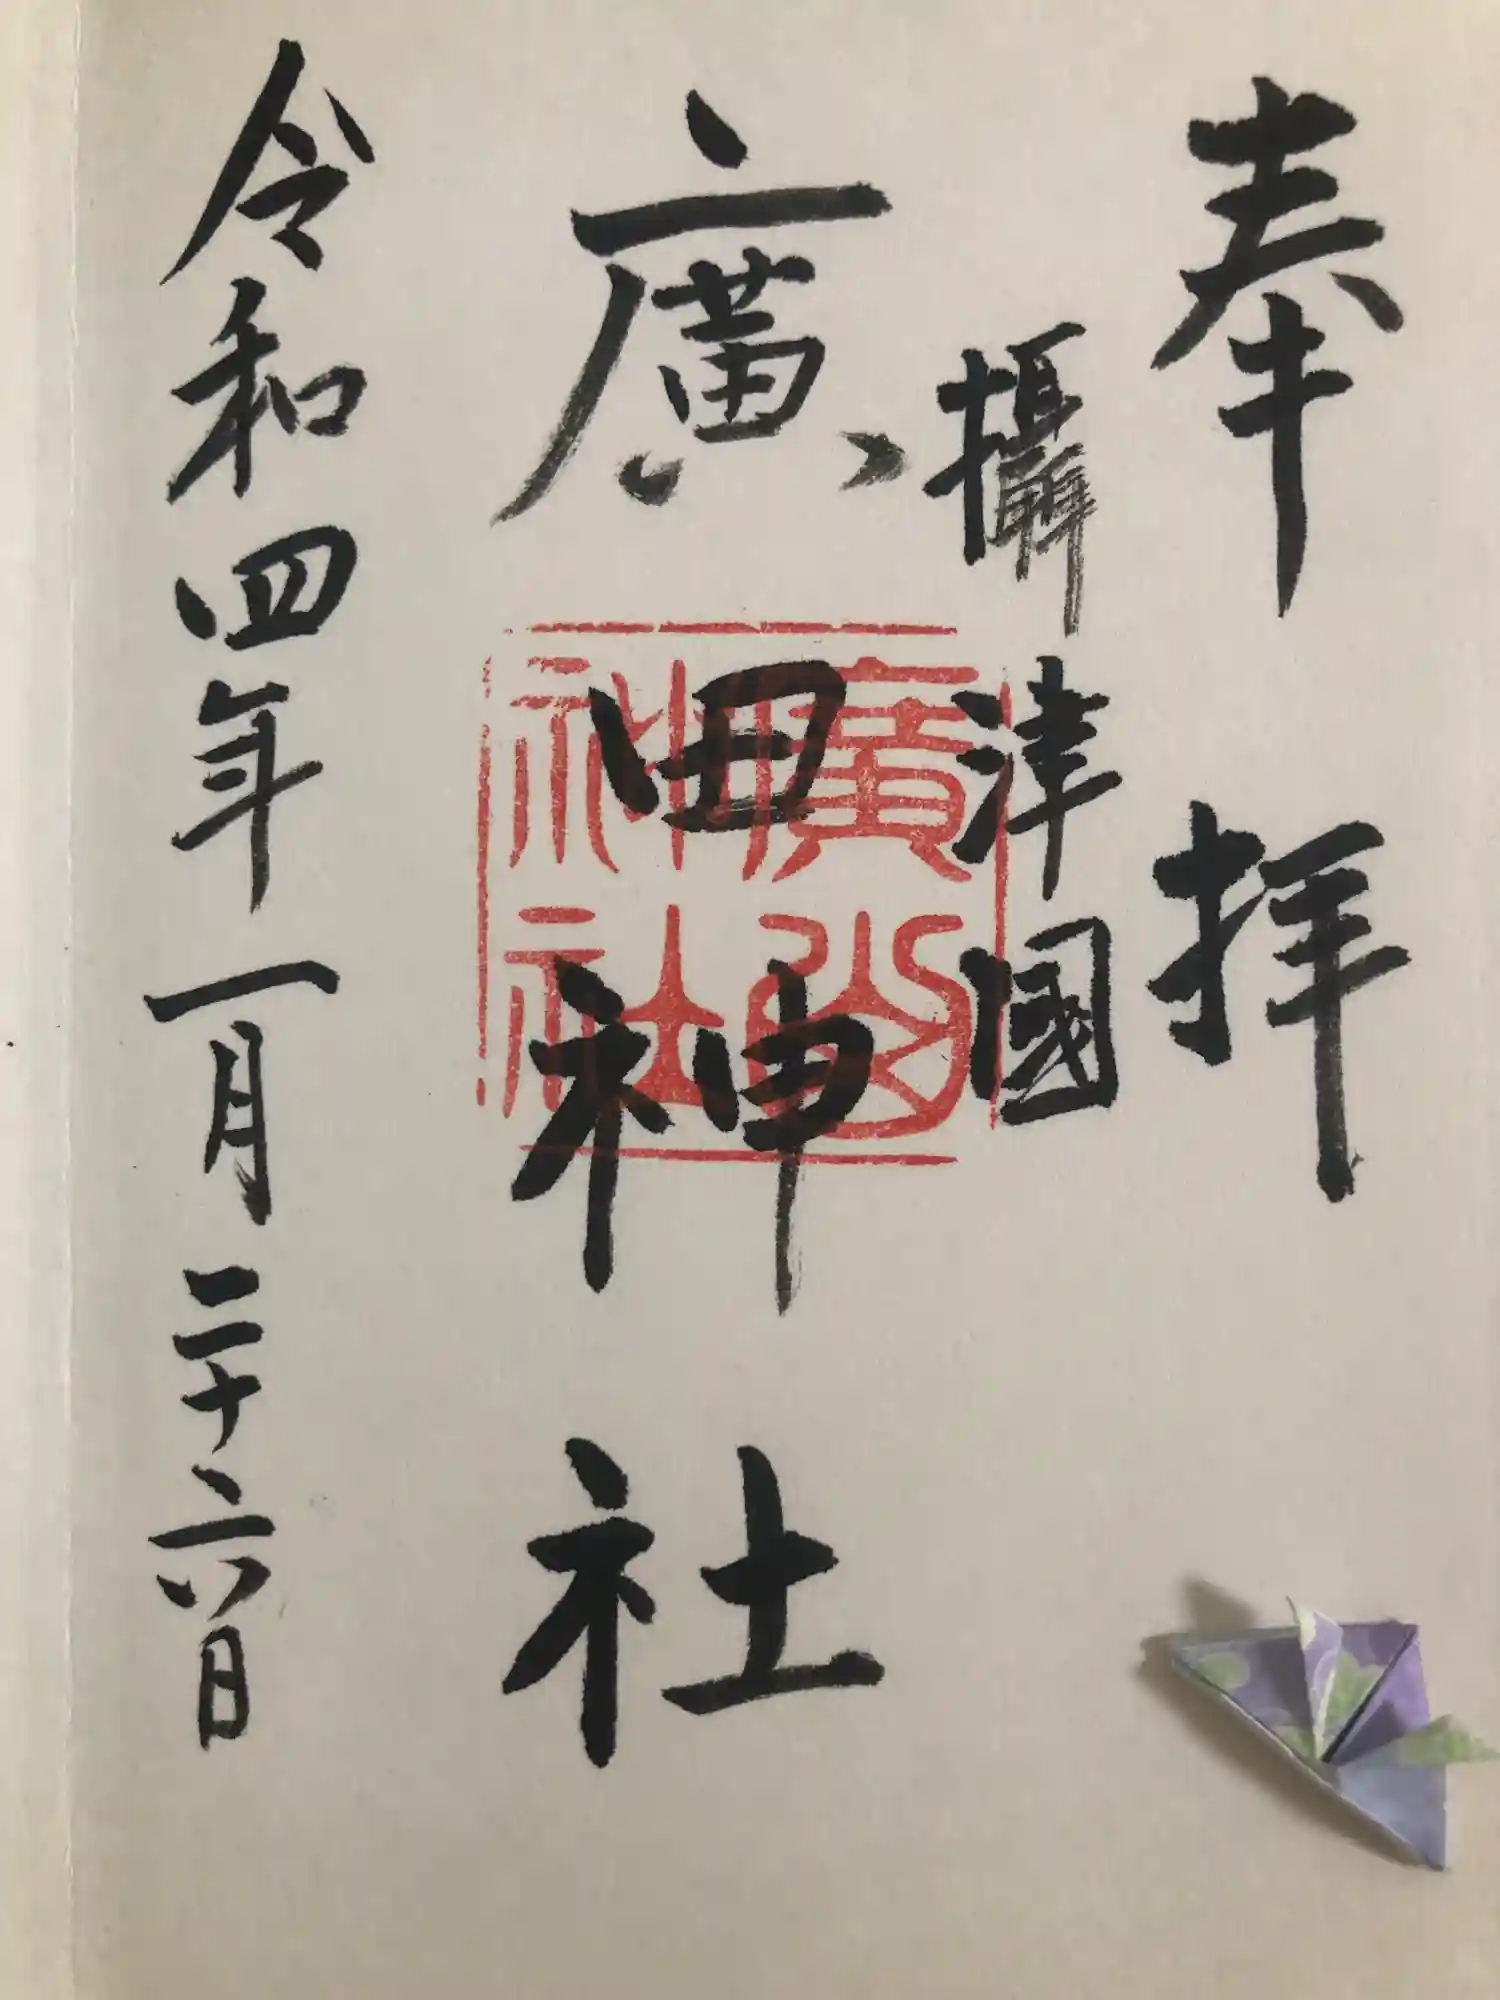 奉拝
攝津國
廣田神社
廣田神社
令和四年一月二十六日